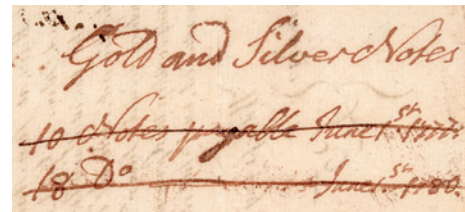 Gold and Silver Notes
10 Notes payable June 1st
18 Do June 1st 1780.